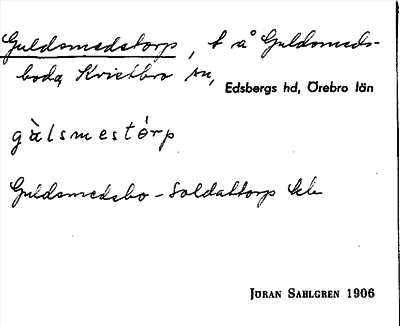 Guldsmedstorp, t å Guldsmeds-
boda Kvistbro sn,
Edsbergs hd, Örebro län
gàlsmestórp
Guldsmedsbo - Soldattorp
JÖRAN SAHLGREN 1906